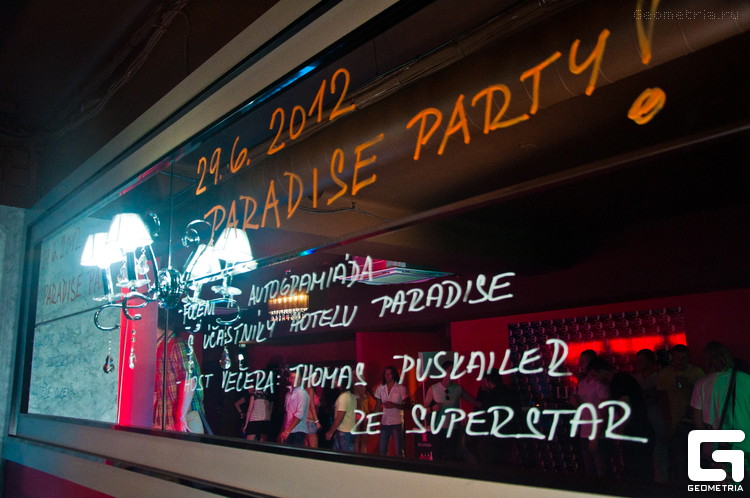 Geometria.ru
29.6. 2012
PARADISE PARTY!
- FOCENÍ + AUTOGRAMIÁDA
S ÚČASTNÍKY HOTELU PARADISE
- HOST VEČERA: THOMAS PUSKAILER
ZE SUPERSTAR
GEOMETRIA